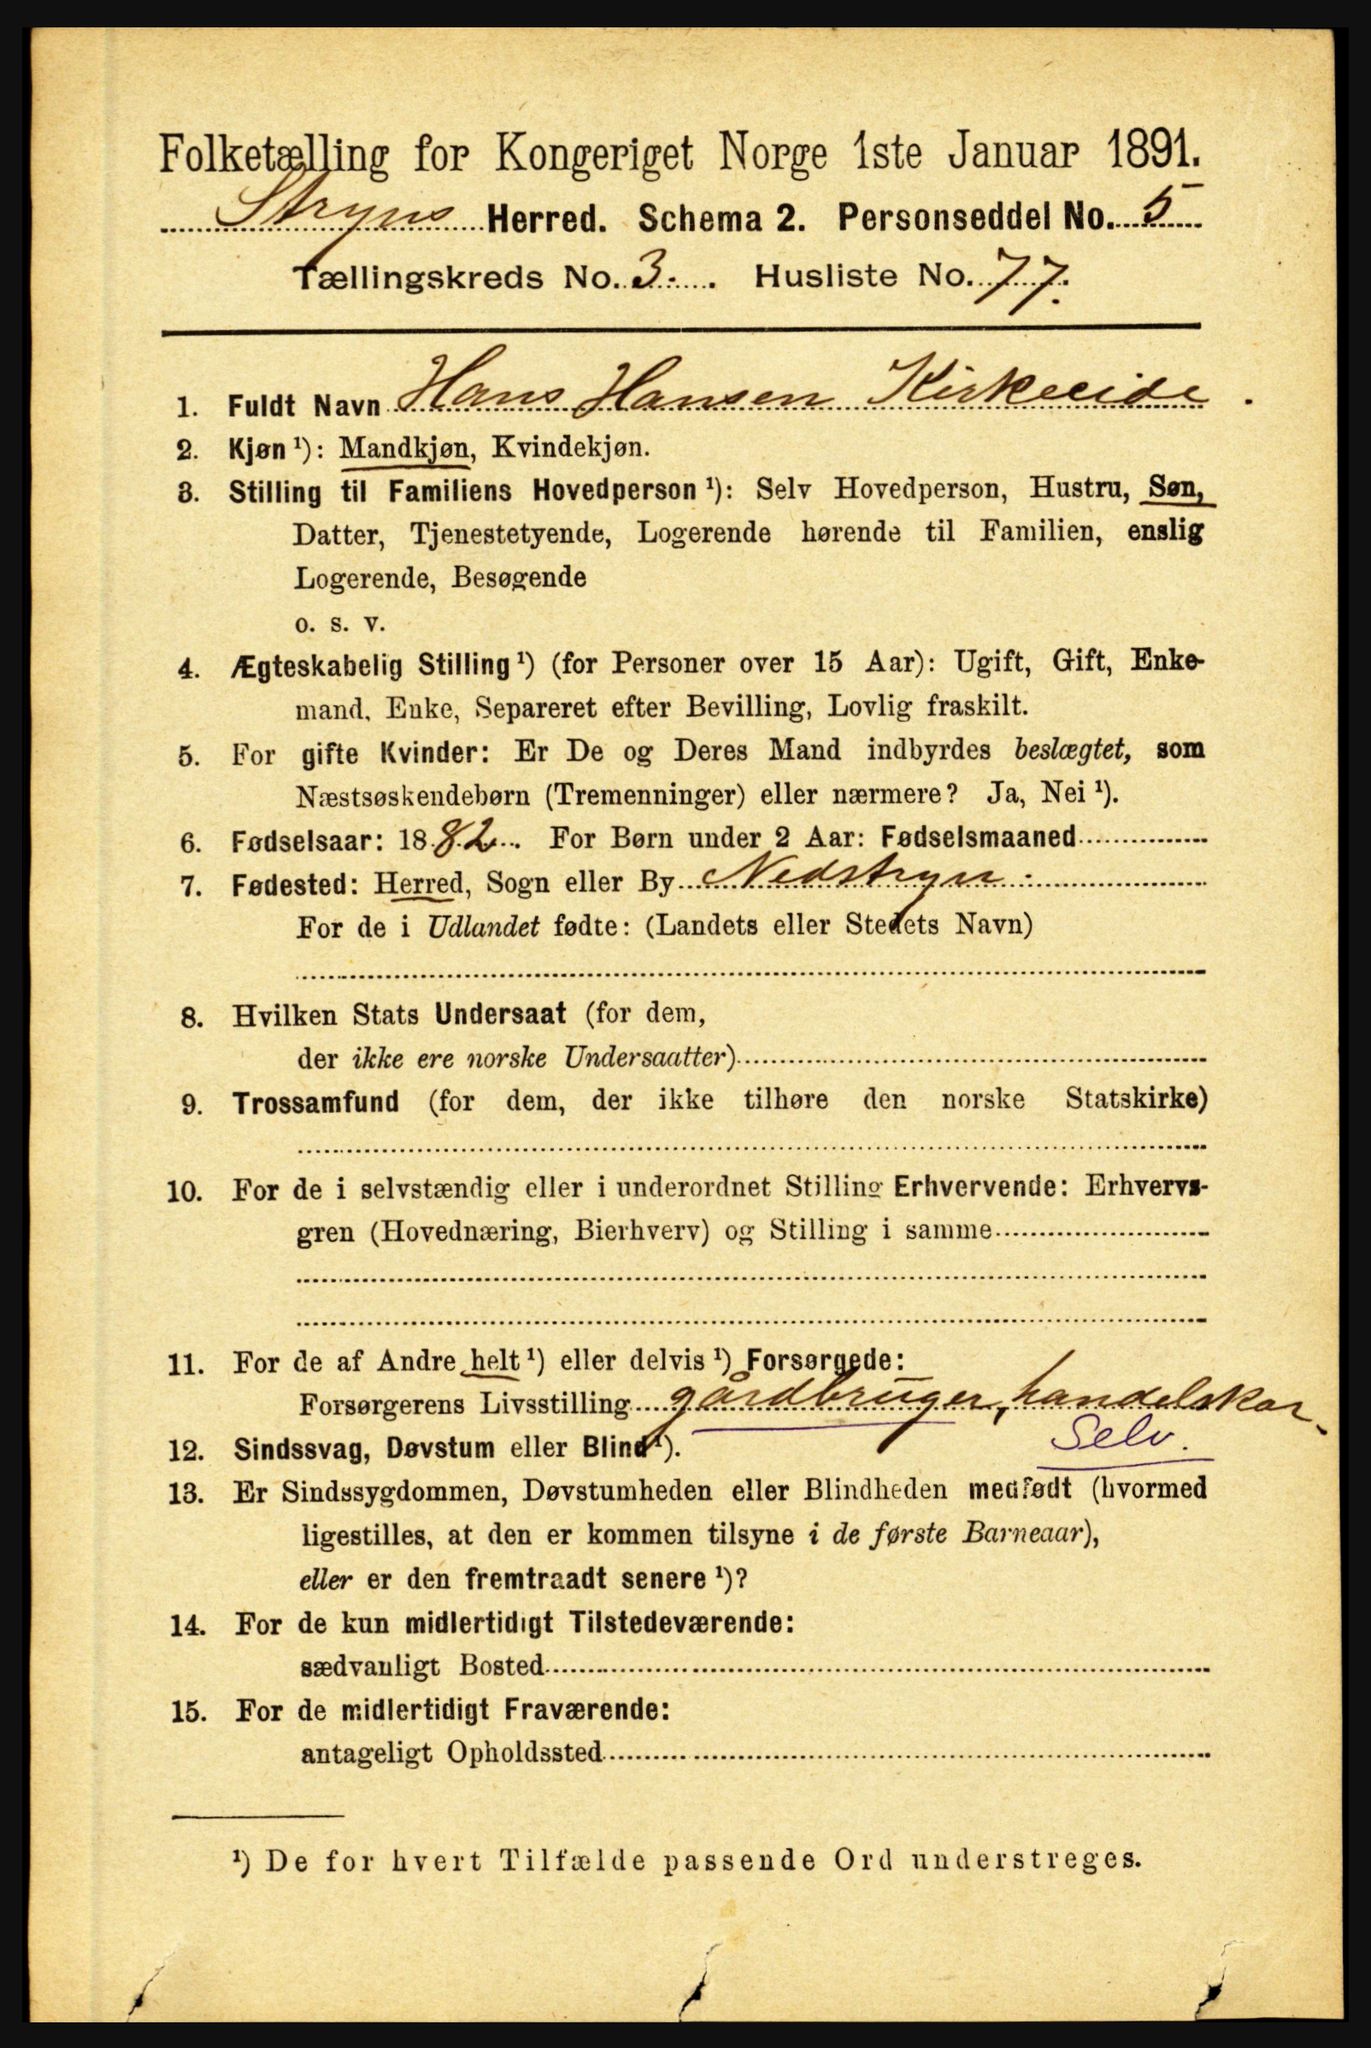 Folketælling for Kongeriget Norge 1ste Januar 1891.
Stryns Herred. Schema 2. Personseddel No. 5
Tællingskreds No. 3. Husliste No. 77.
1. Fuldt Navn Hans Hansen Kirkeeide.
2. Kjøn ¹): Mandkjøn, Kvindekjøn.
3. Stilling til Familiens Hovedperson ¹): Selv Hovedperson, Hustru, Søn,
Datter, Tjenestetyende, Logerende hørende til Familien, enslig
Logerende, Besøgende
o. s. v.
4. Ægteskabelig Stilling ¹) (for Personer over 15 Aar): Ugift, Gift, Enke-
mand, Enke, Separeret efter Bevilling, Lovlig fraskilt.
5. For gifte Kvinder: Er De og Deres Mand indbyrdes beslægtet, som
Næstsøskendebørn (Tremenninger) eller nærmere? Ja, Nei ¹).
6. Fødselsaar: 1882. For Børn under 2 Aar: Fødselsmaaned
7. Fødested: Herred, Sogn eller By Nedstryn.
For de i Udlandet fødte: (Landets eller Stedets Navn)
8. Hvilken Stats Undersaat (for dem,
der ikke ere norske Undersaatter)
9. Trossamfund (for dem, der ikke tilhøre den norske Statskirke)
10. For de i selvstændig eller i underordnet Stilling Erhvervende: Erhvervs-
gren (Hovednæring, Bierhverv) og Stilling i samme
11. For de af Andre helt ¹) eller delvis ¹) Forsørgede:
Forsørgerens Livsstilling gårdbruger, handelskar.
Selv.
12. Sindssvag, Døvstum eller Blind ¹).
13. Er Sindssygdommen, Døvstumheden eller Blindheden medfødt (hvormed
ligestilles, at den er kommen tilsyne i de første Barneaar),
eller er den fremtraadt senere ¹)?
14. For de kun midlertidigt Tilstedeværende:
sædvanligt Bosted
15. For de midlertidigt Fraværende:
antageligt Opholdssted
¹) De for hvert Tilfælde passende Ord understreges.